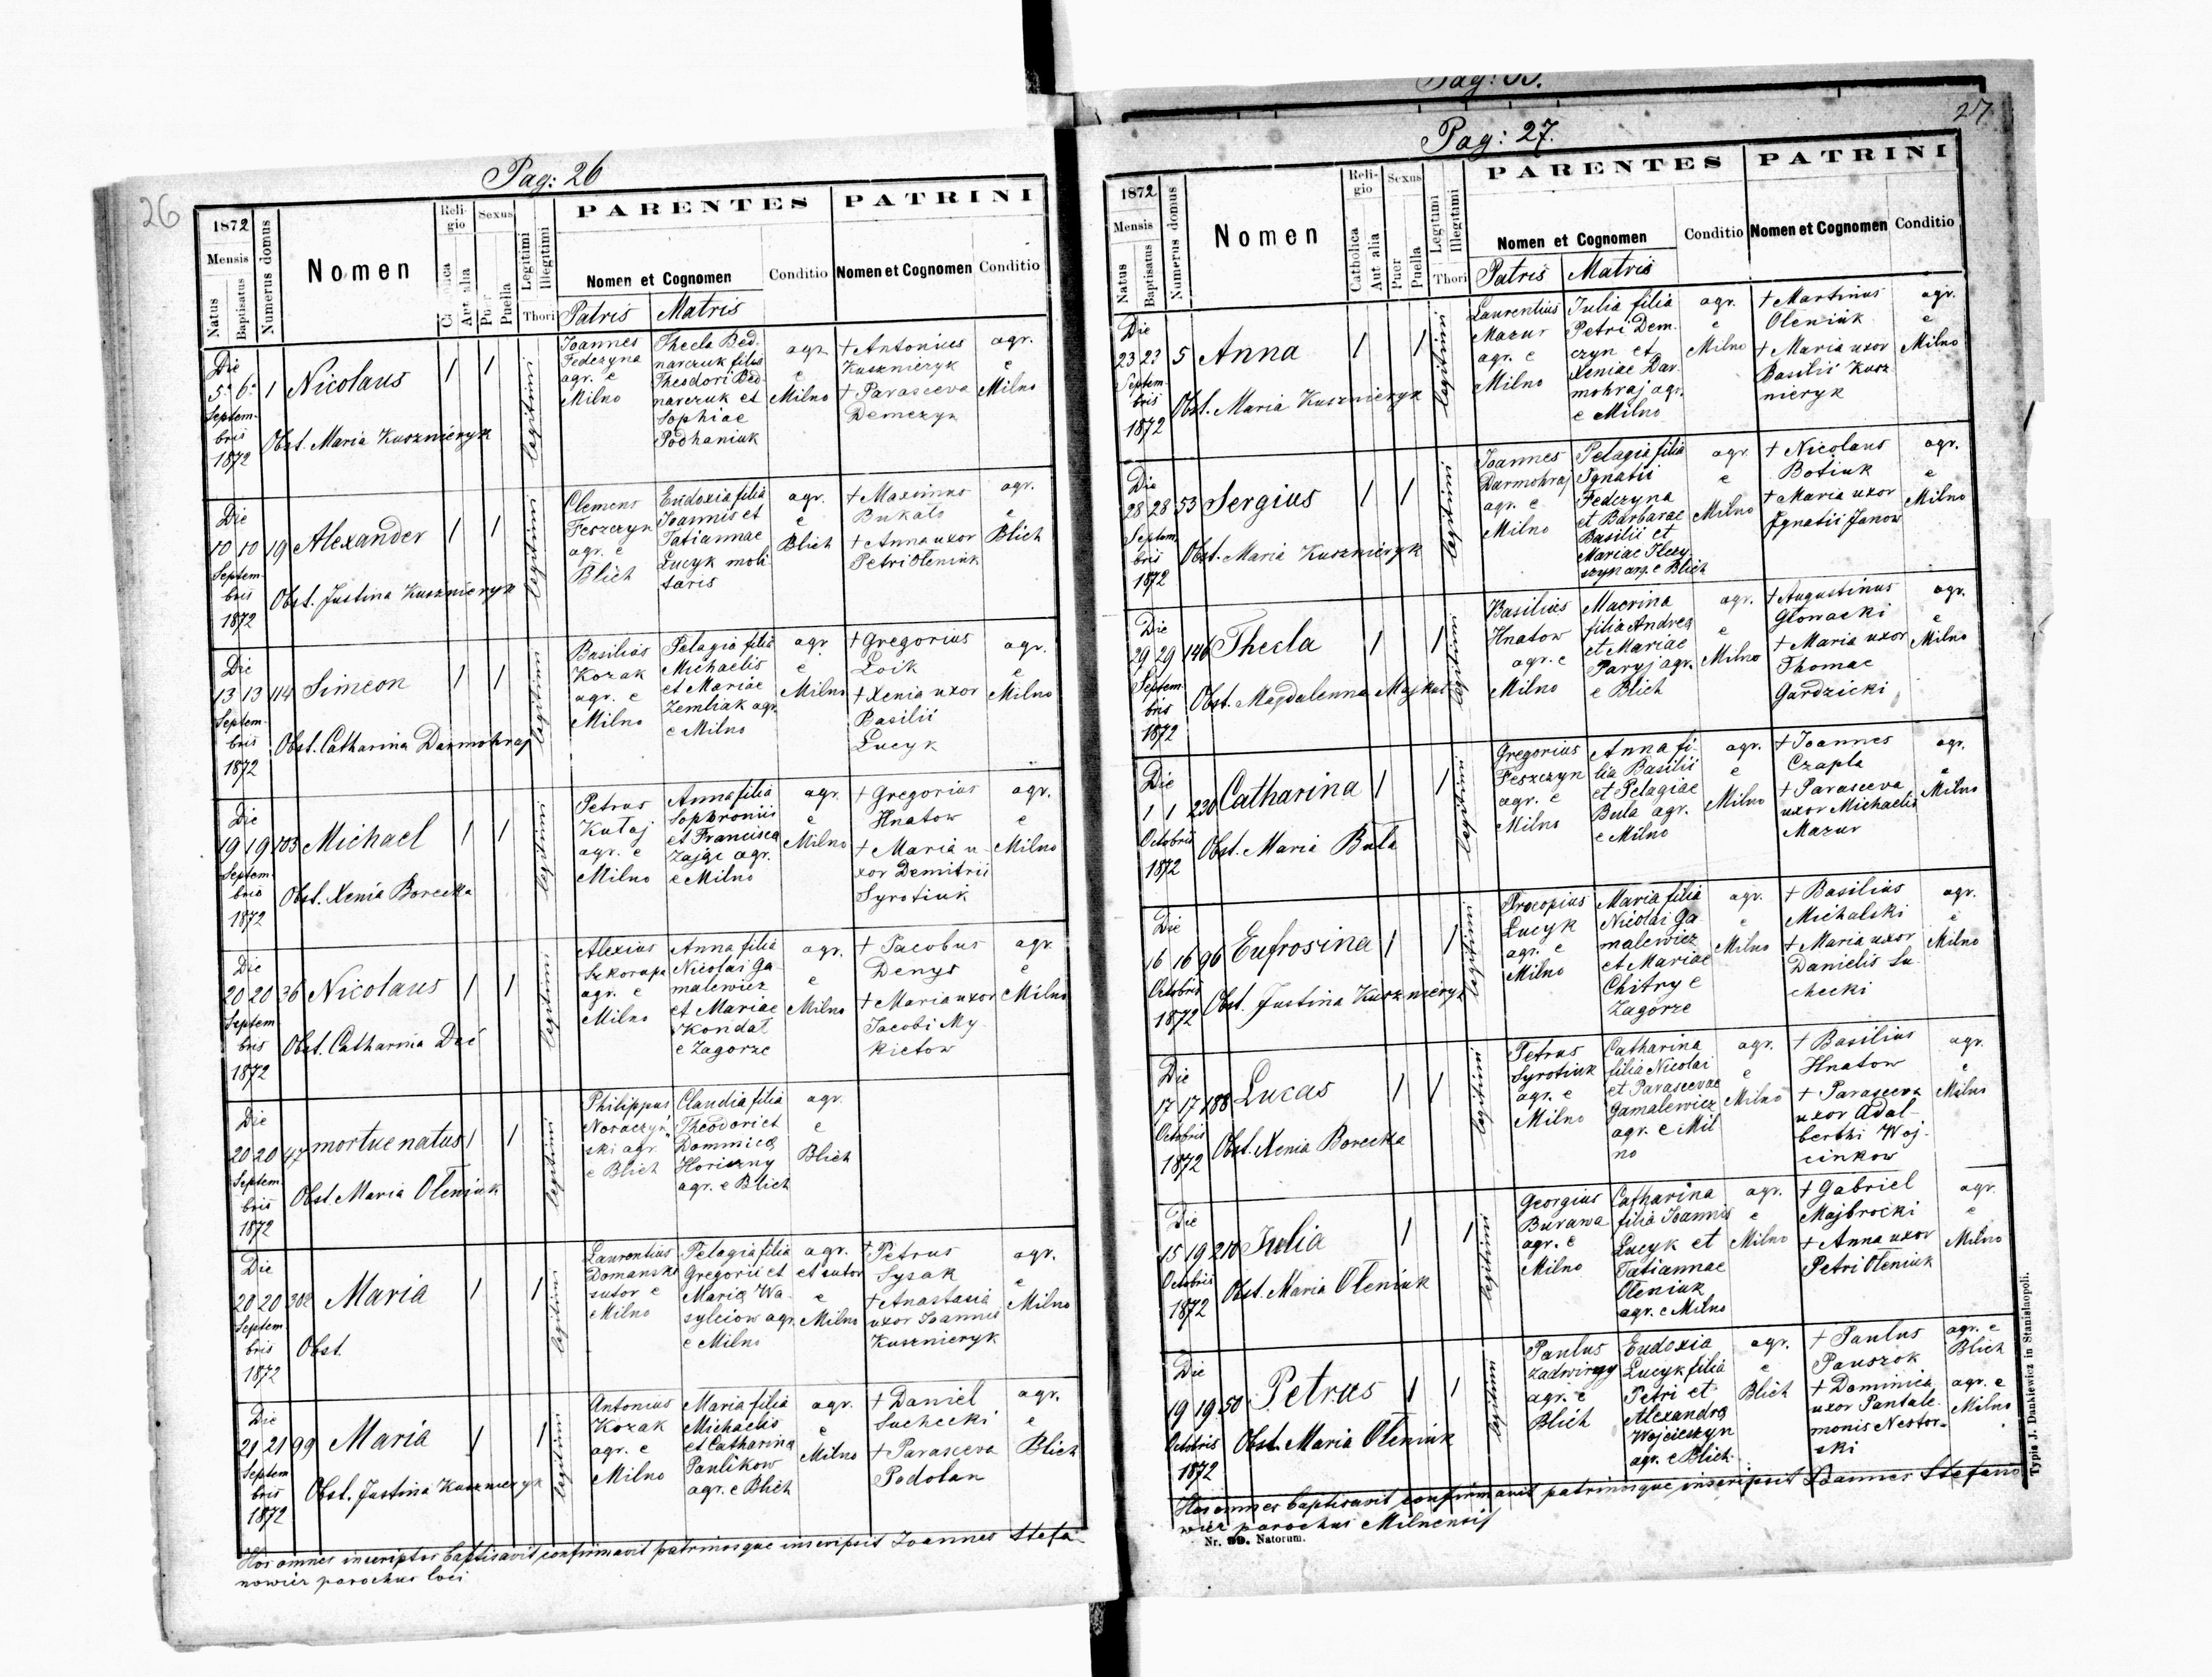 26
Pag: 26
1872
Mensis
Natus
Baptisatus
Numerus domus
Nomen
Religio
Aut alia
Sexus
Puer
Puella
Legitimi
Illegitimi
Thori
PARENTES
Nomen et Cognomen
Patris
Matris
Conditio
PATRINI
Nomen et Cognomen
Conditio
Die
5. 6.
Septem-
bris
1872
1
Nicolaus
1
1
Obst. Maria Kusznieryk
legitimi
Joannes
Fedczyna
agr. e
Milno
Thecla Bed-
narczuk filia
Theodori Bed
narczuk et
Sophiae
Podhaniuk
agr.
e
Milno
† Antonius
Kusznieryk
† Parasceva
Demczyn
agr.
e
Milno
Die
10 10
Septem
bris
1872
19
Alexander
1
1
Obst. Justina Kusznieryk
legitimi
Clemens
Feszczyn
agr. e
Blich
Eudoxia filia
Joannis et
Tatiannae
Lucyk moli
taris
agr.
e
Blich
† Maximus
Bukało
† Anna uxor
Petri Oleniuk
agr.
e
Blich
Die
13 13
Septem-
bris
1872
114
Simeon
1
1
Obst. Catharina Darmohraj
legitimi
Basilius
Kozak
agr. e
Milno
Pelagia filia
Michaelis
et Mariae
Zemliak agr.
e Milno
agr
e
Milno
† Gregorius
Loik
† Xenia uxor
Basilii
Lucyk
agr.
e
Milno
Die
19 19
Septem
bris
1872
103
Michael
1
1
Obst. Xenia Borecka
legitimi
Petrus
Kułaj
agr. e
Milno
Anna filia
Sophronii
et Francisca
Zając agr.
e Milno
agr.
e
Milno
† Gregorius
Hnatow
† Maria u-
xor Demitrii
Syrotiuk
agr.
e
Milno
Die
20 20
Septem
bris
1872
36
Nicolaus
1
1
Obst. Catharina Dec
legitimi
Alexius
Szkorupa
agr. e
Milno
Anna filia
Nicolai Ga-
malewicz
et Mariae
Kondat
e Zagorze
agr.
e
Milno
† Jacobus
Denys
† Maria uxor
Jacobi My-
kietow
agr
e
Milno
Die
20 20
Septem
bris
1872
47
mortue natus
1
1
Obst. Maria Oleniuk
legitimi
Philippus
Noraczyń
ski agr.
e Blich
Claudia filia
Theodori et
Dominica
Horiszny
agr. e Blich
agr.
e
Blich
Die
20 20
Septem
bris
1872
302
Maria
1
1
Obst.
legitimi
Laurentius
Domanski
sutor e
Milno
Pelagia filia
Gregorii et
Maria Wa-
sylciow agr.
e Milno
agr.
et sutor
e
Milno
† Petrus
Sysak
† Anastasia
uxor Joannis
Kusznieryk
agr.
e
Milno
Die
21 21
Septem
bris
1872
99
Maria
1
1
Obst. Justina Kusznieryk
legitimi
Antonius
Kozak
agr. e
Milno
Maria filia
Michaelis
et Catharina
Paulikow
agr. e Blich
agr.
e
Milno
† Daniel
Suchecki
† Parasceva
Podolan
agr.
e
Blich
Hos omnes inscriptos baptisavit confirmavit patrinosque inscripsit Joannes Stefa-
nowicz parochus loci
Pag: 27.
27
1872
Mensis
Natus
Baptisatus
Numerus domus
Nomen
Religio
Catholica
Aut alia
Sexus
Puer
Puella
Legitimi
Illegitimi
Thori
PARENTES
Nomen et Cognomen
Patris
Matris
Conditio
PATRINI
Nomen et Cognomen
Conditio
Die
23 23
Septem
bris
1872
5
Anna
1
1
Obst. Maria Kusznieryk
legitimi
Laurentius
Mazur
agr. e
Milno
Julia filia
Petri Dem-
czyn et
Xeniae Dar
mohraj agr.
e Milno
agr.
e
Milno
† Martinus
Oleniuk
† Maria uxor
Basilii Kusz
nieryk
agr.
e
Milno
Die
28 28
Septem
bris
1872
53
Sergius
1
1
Obst. Maria Kusznieryk
legitimi
Joannes
Darmohraj
agr. e
Milno
Pelagia filia
Ignatii
Fedczyna
et Barbarae
Basilii et
Mariae
agr. e Blich
agr.
e
Milno
† Nicolaus
Botiuk
† Maria uxor
Ignatii Janow
agr.
e
Milno
Die
29 29
Septem
bris
1872
146
Thecla
1
1
Obst. Magdalenna Majkut
legitimi
Basilius
Hnatow
agr. e
Milno
Macrina
filia Andrea
et Mariae
Paryj agr.
e Blich
agr.
e
Milno
† Augustinus
Głowacki
† Maria uxor
Thomae
Gardzicki
agr.
e
Milno
Die
1 1
Octobris
1872
230
Catharina
1
1
Obst. Maria Buła
legitimi
Gregorius
Feszczyn
agr. e
Milno
Anna fi-
lia Basilii
et Pelagiae
Bula agr.
e Milno
agr.
e
Milno
† Joannes
Czapla
† Parasceva
uxor Michaelis
Mazur
agr.
e
Milno
Die
16 16
Octobris
1872
96
Eufrosina
1
1
Obst. Justina Kusznieryk
legitimi
Procopius
Lucyk
agr. e
Milno
Maria filia
Nicolai Ga
malewicz
et Mariae
Chitry e
Zagorze
agr.
e
Milno
† Basilius
Michalski
† Maria uxor
Danielis Su-
checki
agr.
e
Milno
Die
17 17
Octobris
1872
188
Lucas
1
1
Obst. Xenia Borecka
legitimi
Petrus
Syrotiuk
agr. e
Milno
Catharina
filia Nicolai
et Parascevae
Gamalewicz
agr. e Mil
no
agr.
e
Milno
† Basilius
Hnatow
† Parasceva
uxor Adal-
berthi Woj-
cinkow
agr.
e
Milno
Die
15 19
Octobris
1872
210
Julia
1
1
Obst. Maria Oleniuk
legitimi
Georgius
Burawa
agr. e
Milno
Catharina
filia Joannis
Lucyk et
Tatiannae
Oleniuk
agr. e Milno
agr.
e
Milno
† Gabriel
Majbrocki
† Anna uxor
Petri Oleniuk
agr.
e
Milno
Die
19 19
Octobris
1872
50
Petrus
1
1
Obst. Maria Oleniuk
legitimi
Paulus
Zadwirny
agr. e
Blich
Eudoxia
Lucyk filia
Petri et
Alexandra
Wojcieszyn
agr. e Blich
agr.
e
Blich
† Paulus
Pauszok
† Dominica
uxor Pantale
monis Nestor-
ski
agr. e
Blich
agr. e
Milno
Hos omnes baptisavit confirmavit patrinosque inscripsit Joannes Stefano
wicz parochus Milnensis
Nr. 99. Natorum.
Typis J. Dankiewicz in Stanislaopoli.